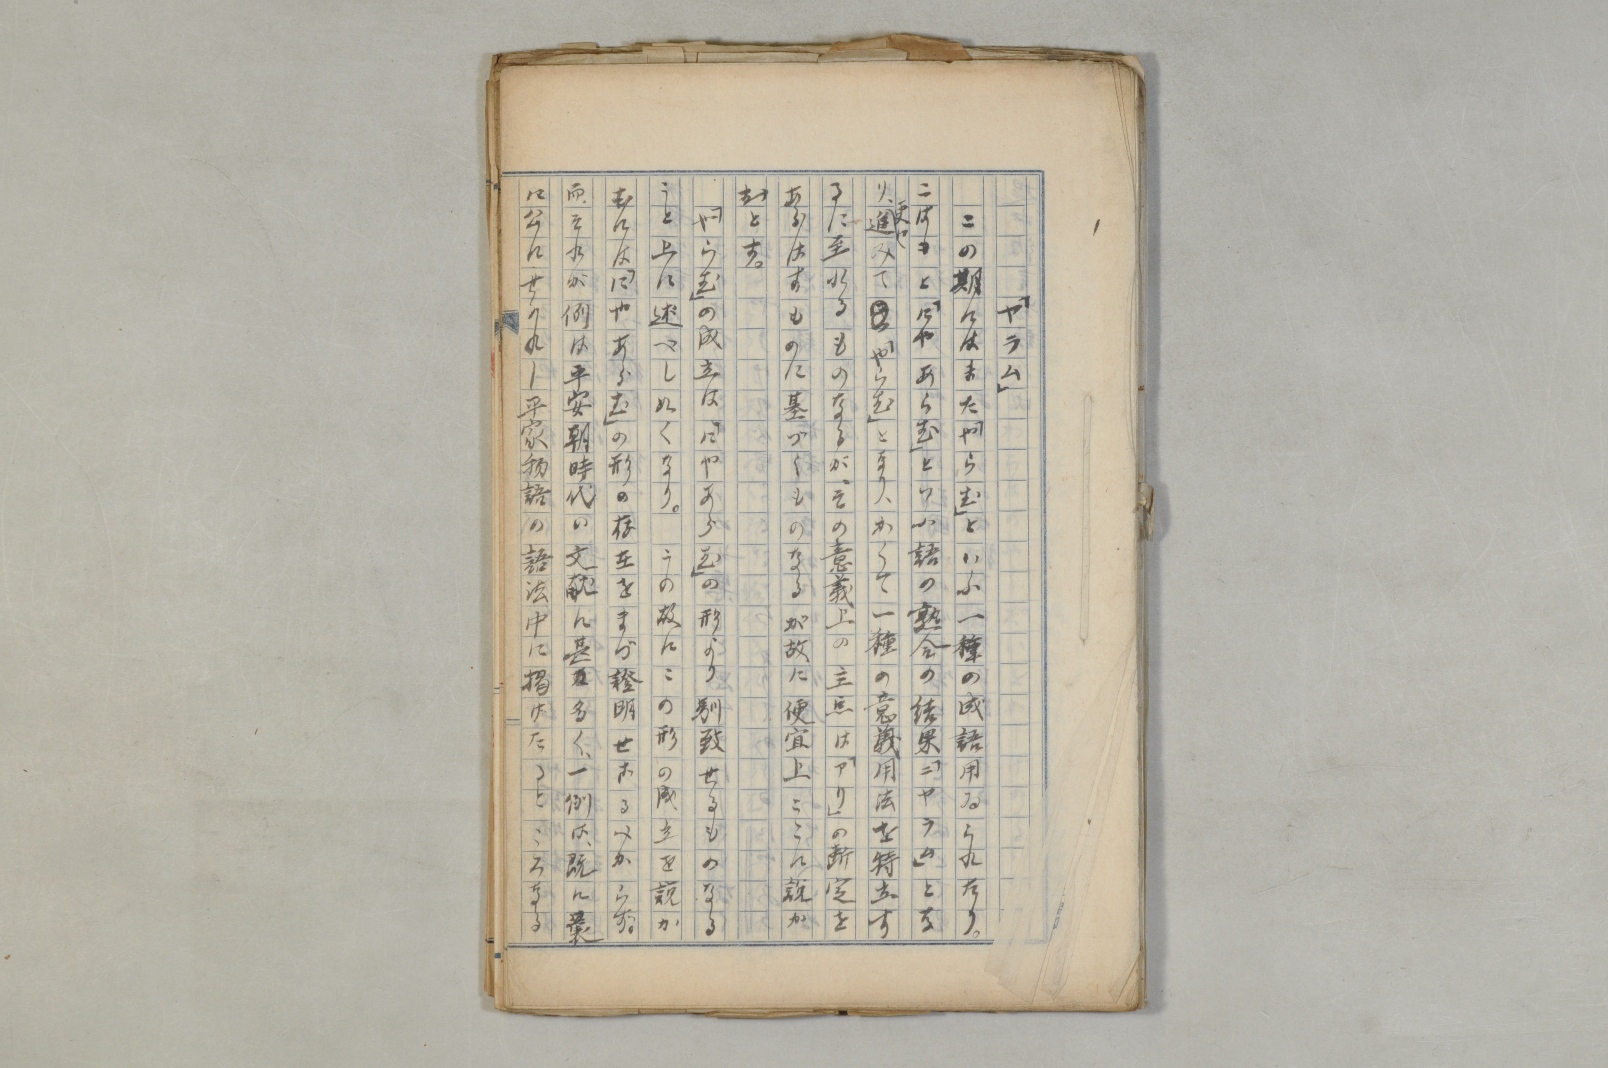 「ヤラム」
この期にはまた「やらむ」といふ一種の成語用ゐられたり。
こはもと「にやあらむ」といふ語の熟合の結果「ニヤラム」とな
り、更に進みて「やらむ」となり、かくて一種の意義用法を特立す
るに至れるものなるが、その意義上の主点は「アリ」の断定を
あらはすものに基づくものなるが故に便宜上ここに説か
むとす。
「やらむ」の成立は「にやあらむ」の形より馴致せるものなる
こと上に述べし如くなり。この故にこの形の成立を説か
むには「にやあらむ」の形の存在をまづ證明せざるべからず。
而、それが例は平安朝時代の文献に甚多く、一例は、既に曩
に公にせられし平家物語の語法中に掲げたるところなる